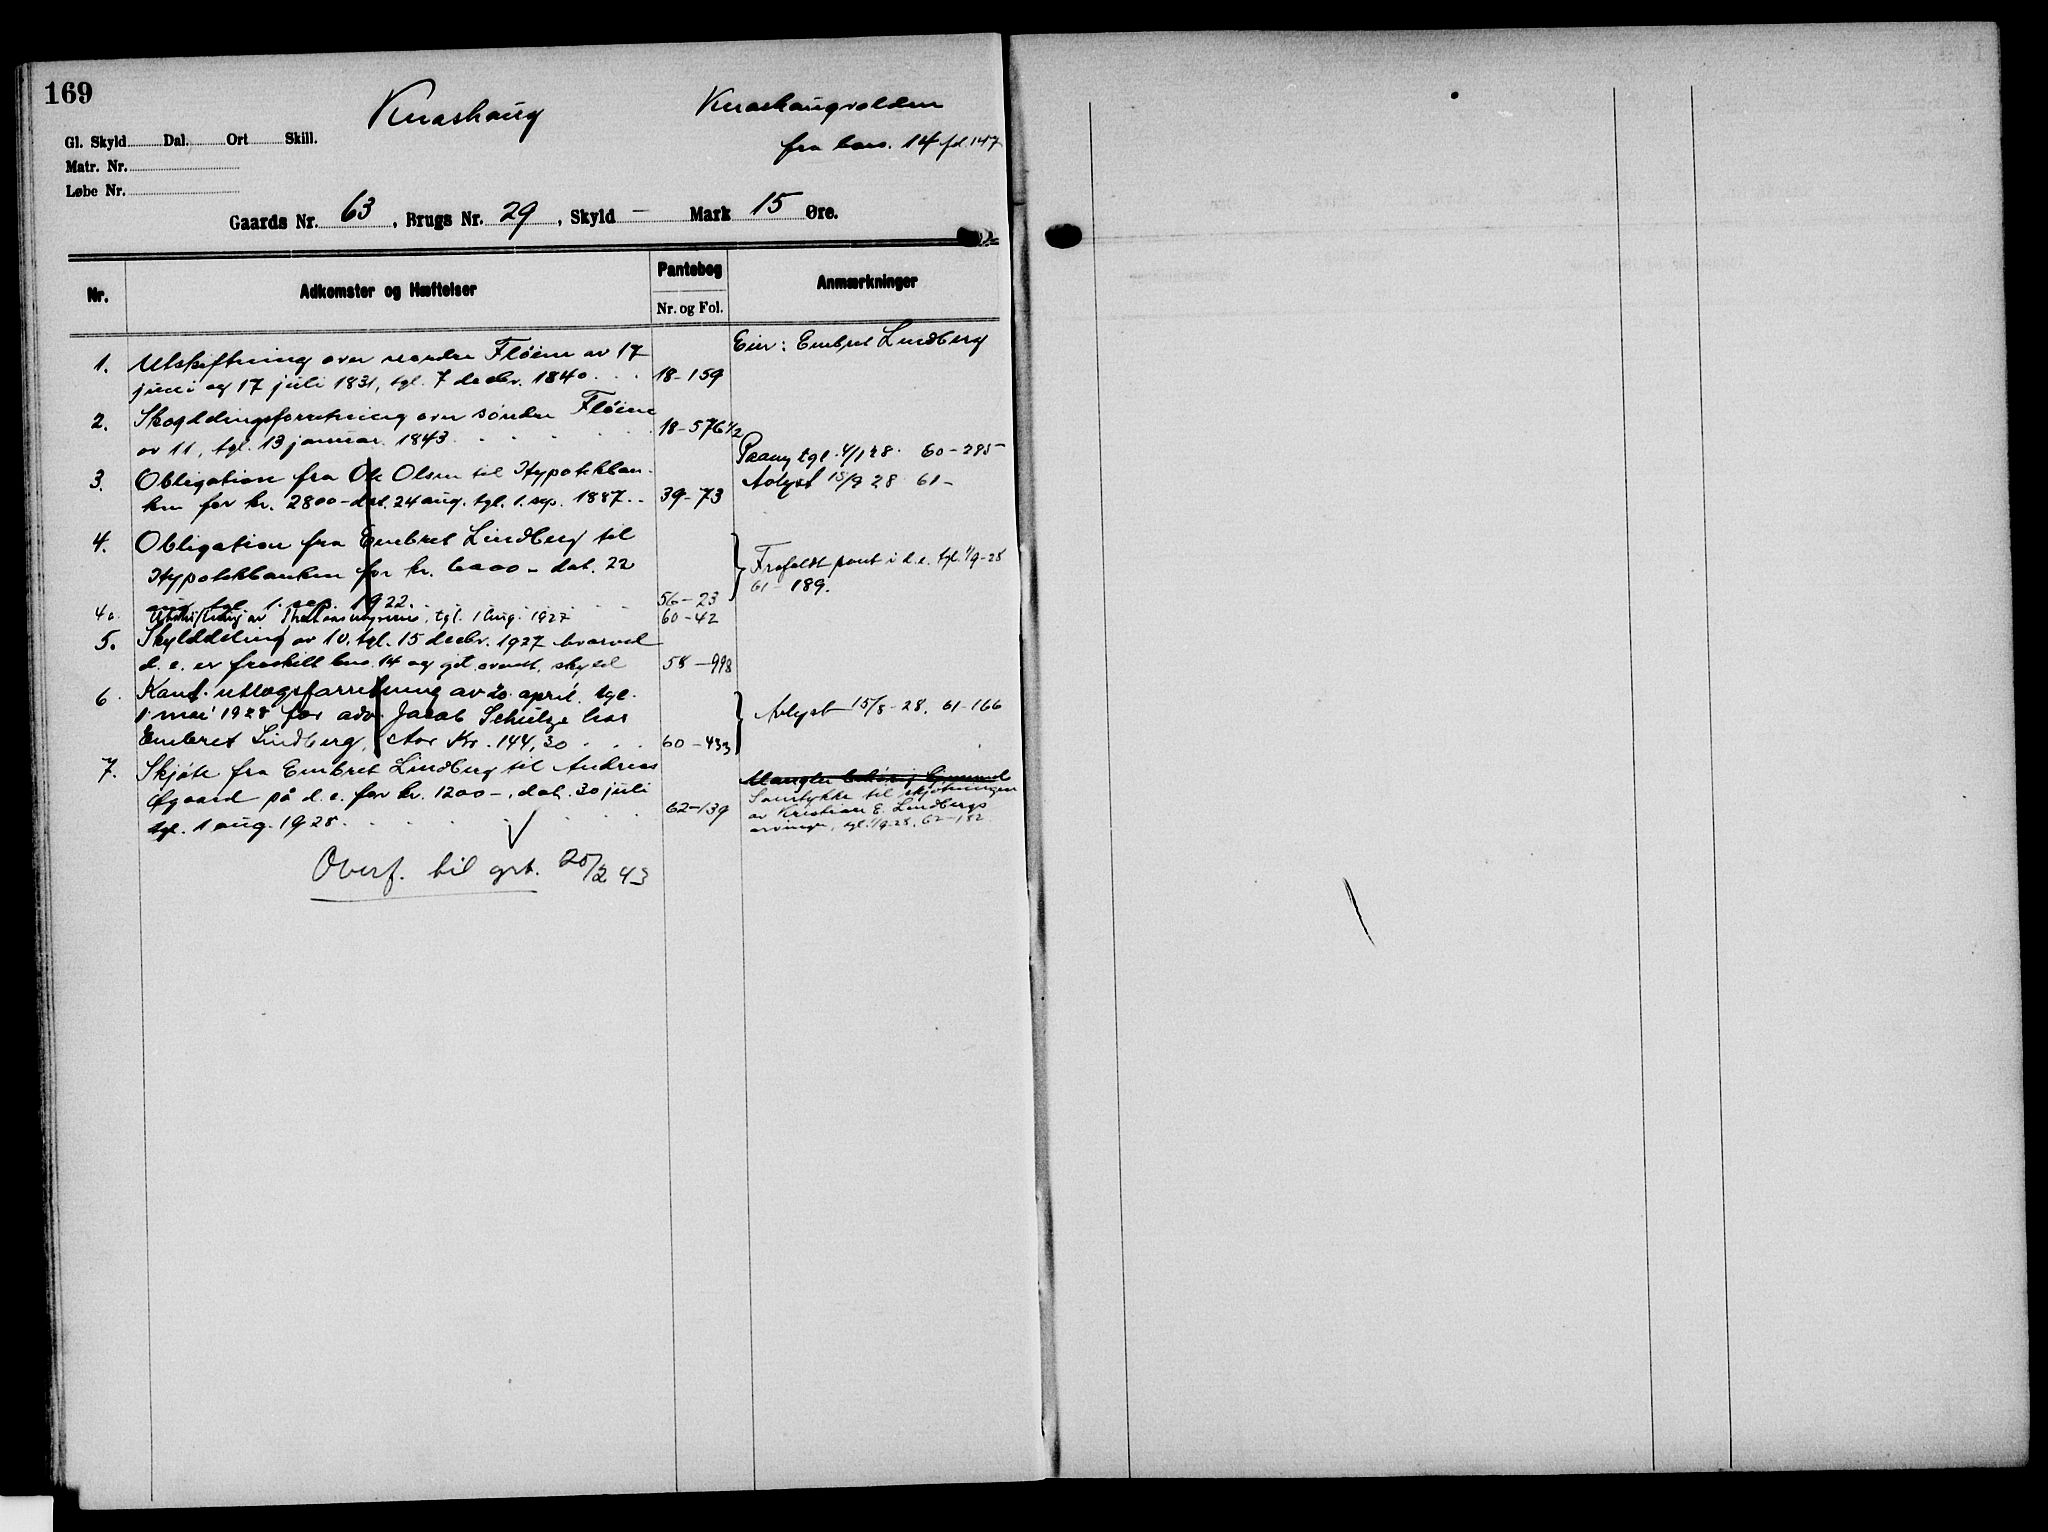 169
Knashaug
Knashaugvolden
fra brno. 14 fol. 147
Gl. Skyld Dal. Ort Skill.
Matr. Nr.
Løbe Nr.
Gaards Nr. 63, Brugs Nr. 29, Skyld — Mark 15 Øre.
Nr. Adkomster og Hæftelser Pantebog Anmærkninger
Nr. og Fol.
Eier: Embret Lindberg
1. Utskiftning over nordre Fløien av 17
juni og 17 juli 1831, tgl. 7 decbr. 1840 . . . 18-159
2. Skylddelingsforretning over søndre Fløien
av 11, tgl. 13 januar 1843 . . . . . . 18-576 1/2
3. Obligation fra Ole Olsen til Hypotekban-
ken for kr. 2800 - dat. 24 aug. tgl. 1. sep. 1887. . 39-73
Paany tgl. 4/1 28. 60-295
Avlyst 15/9 28 61-
4. Obligation fra Embret Lindberg til
Hypotekbanken for kr. 6000 - dat. 22
aug. tgl. 1. sep. 1922. . . . 56-23
Frafaldt pant i d.e. tgl. 1/9-28
61-189.
4a. Utskiftning av tgl. 1 aug. 1927 60-42
5. Skylddeling av 10. tgl. 15 decbr. 1927 hvorved
d. e. er fraskilt bno. 14 og git ovennt. skyld 58-998
6. Kant. utlægsforretning av 20. april. tgl.
1. mai 1928 for adv. Jacob Schulze hos
Embret Lindberg, stor Kr. 144,30 . . . 60-433
Avlyst 15/8-28. 61-166
7. Skjøte fra Embret Lindberg til Andreas
Øgaard på d. e. for kr. 1200 -, dat. 30 juli
tgl. 1 aug. 1928. . . . . . . 62-139
Mangler
Samtykke til skjøtningen
av Kristian E. Lindbergs
arvinger, tgl. 1/9-28. 62-182
Overf. til grb. 25/2 43